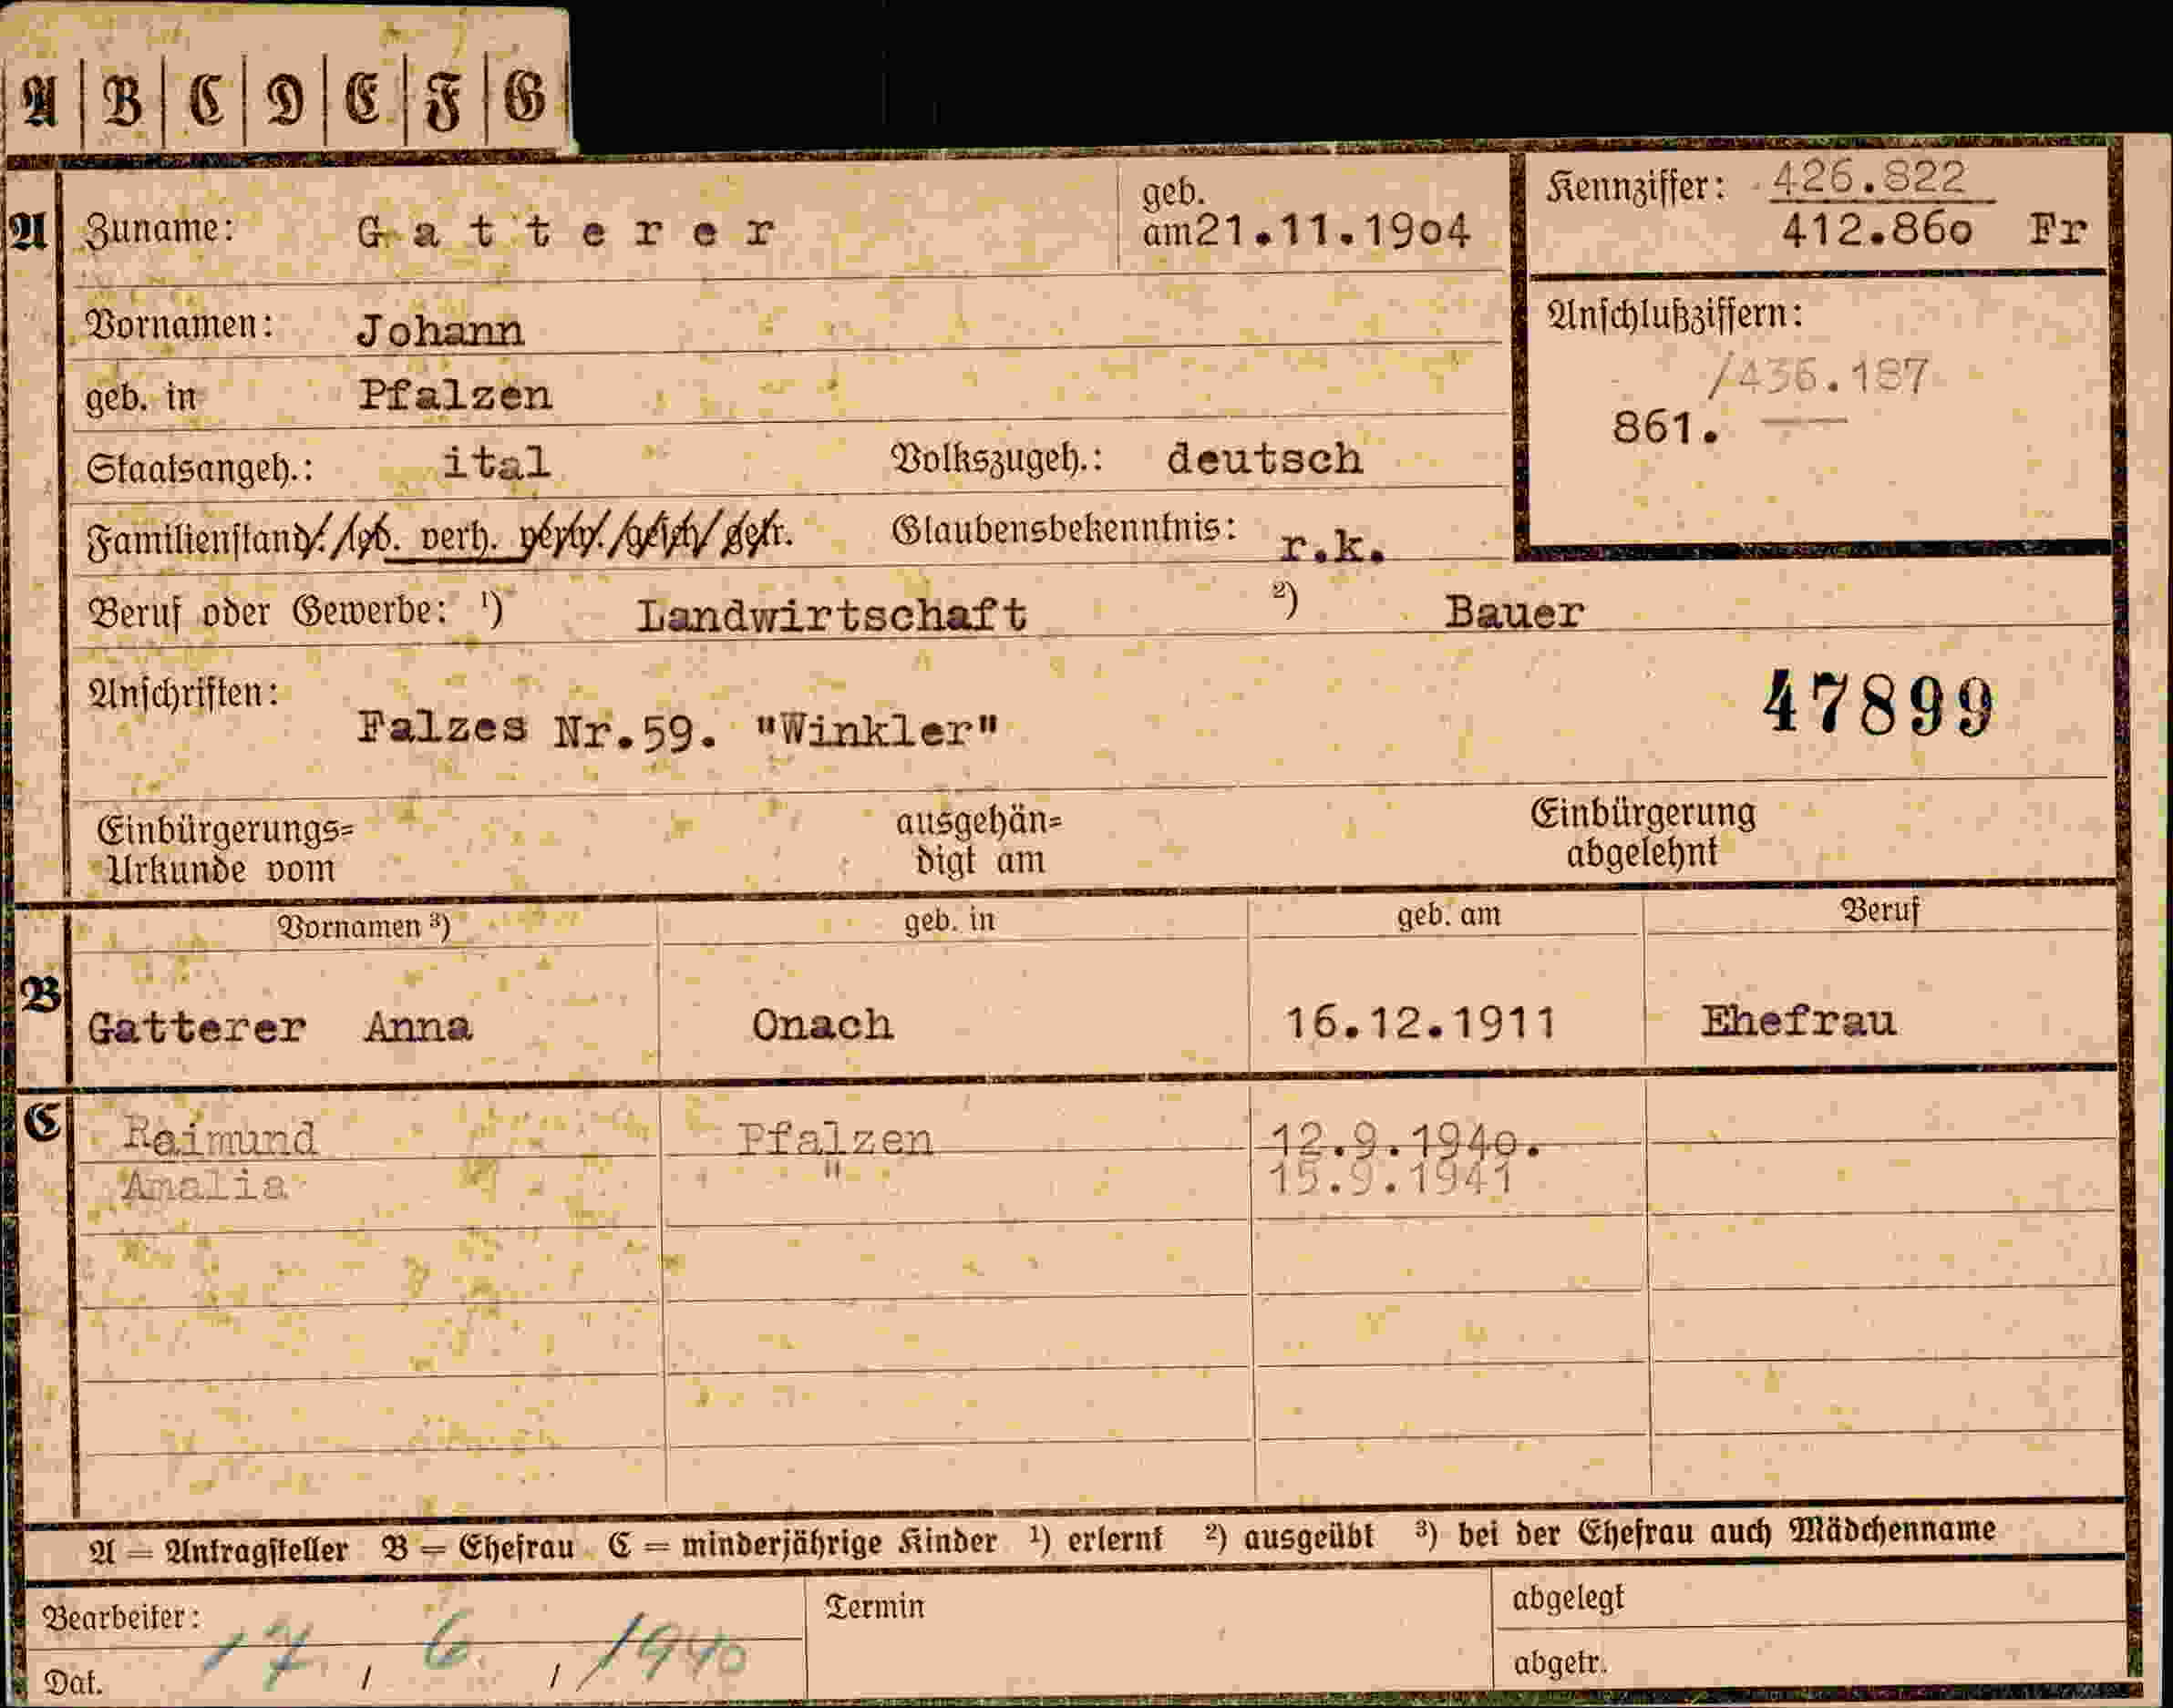 A B C D E F G
A Zuname: Gatterer geb. am 21.11.1904 Kennziffer: 426.822
412.860 Fr
Vornamen: Johann Anschlußziffern:
geb. in Pfalzen /436.187
861. —
Staatsangeh.: ital Volkszugeh.: deutsch
Familienstand: led. verh. verw. gesch. getr. Glaubensbekenntnis: r.k.
Beruf oder Gewerbe: ¹) Landwirtschaft ²) Bauer
Anschriften: 47899
Falzes Nr.59. "Winkler"
Einbürgerungs= ausgehän= Einbürgerung
Urkunde vom digt am abgelehnt
Vornamen ³) geb. in geb. am Beruf
B Gatterer Anna Onach 16.12.1911 Ehefrau
C Raimund Pfalzen 12.9.1940.
Amalia " 15.9.1941
A = Antragsteller B = Ehefrau C = minderjährige Kinder ¹) erlernt ²) ausgeübt ³) bei der Ehefrau auch Mädchenname
Bearbeiter: Termin abgelegt
Dat. 17. / 6. / 1940 abgetr.